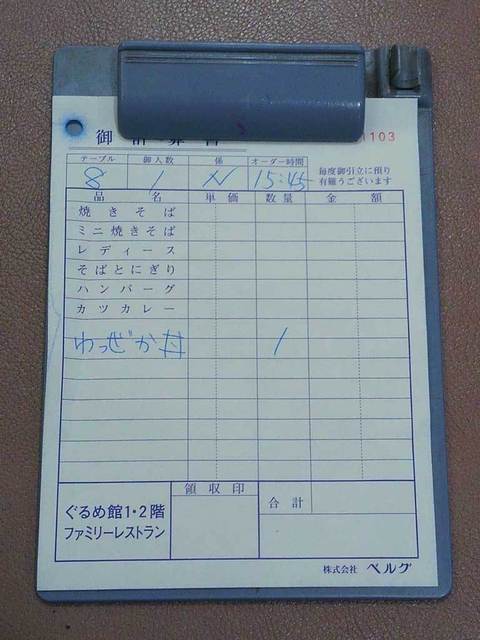 御計算書
1103
テーブル 御人数 係 オーダー時間
8 1 N 15:45
毎度御引立に預り
有難うございます
品名 単価 数量 金額
焼きそば
ミニ焼きそば
レディース
そばとにぎり
ハンバーグ
カツカレー
わっぜか丼 1
領収印
合計
ぐるめ館1・2階
ファミリーレストラン
株式会社 ベルグ